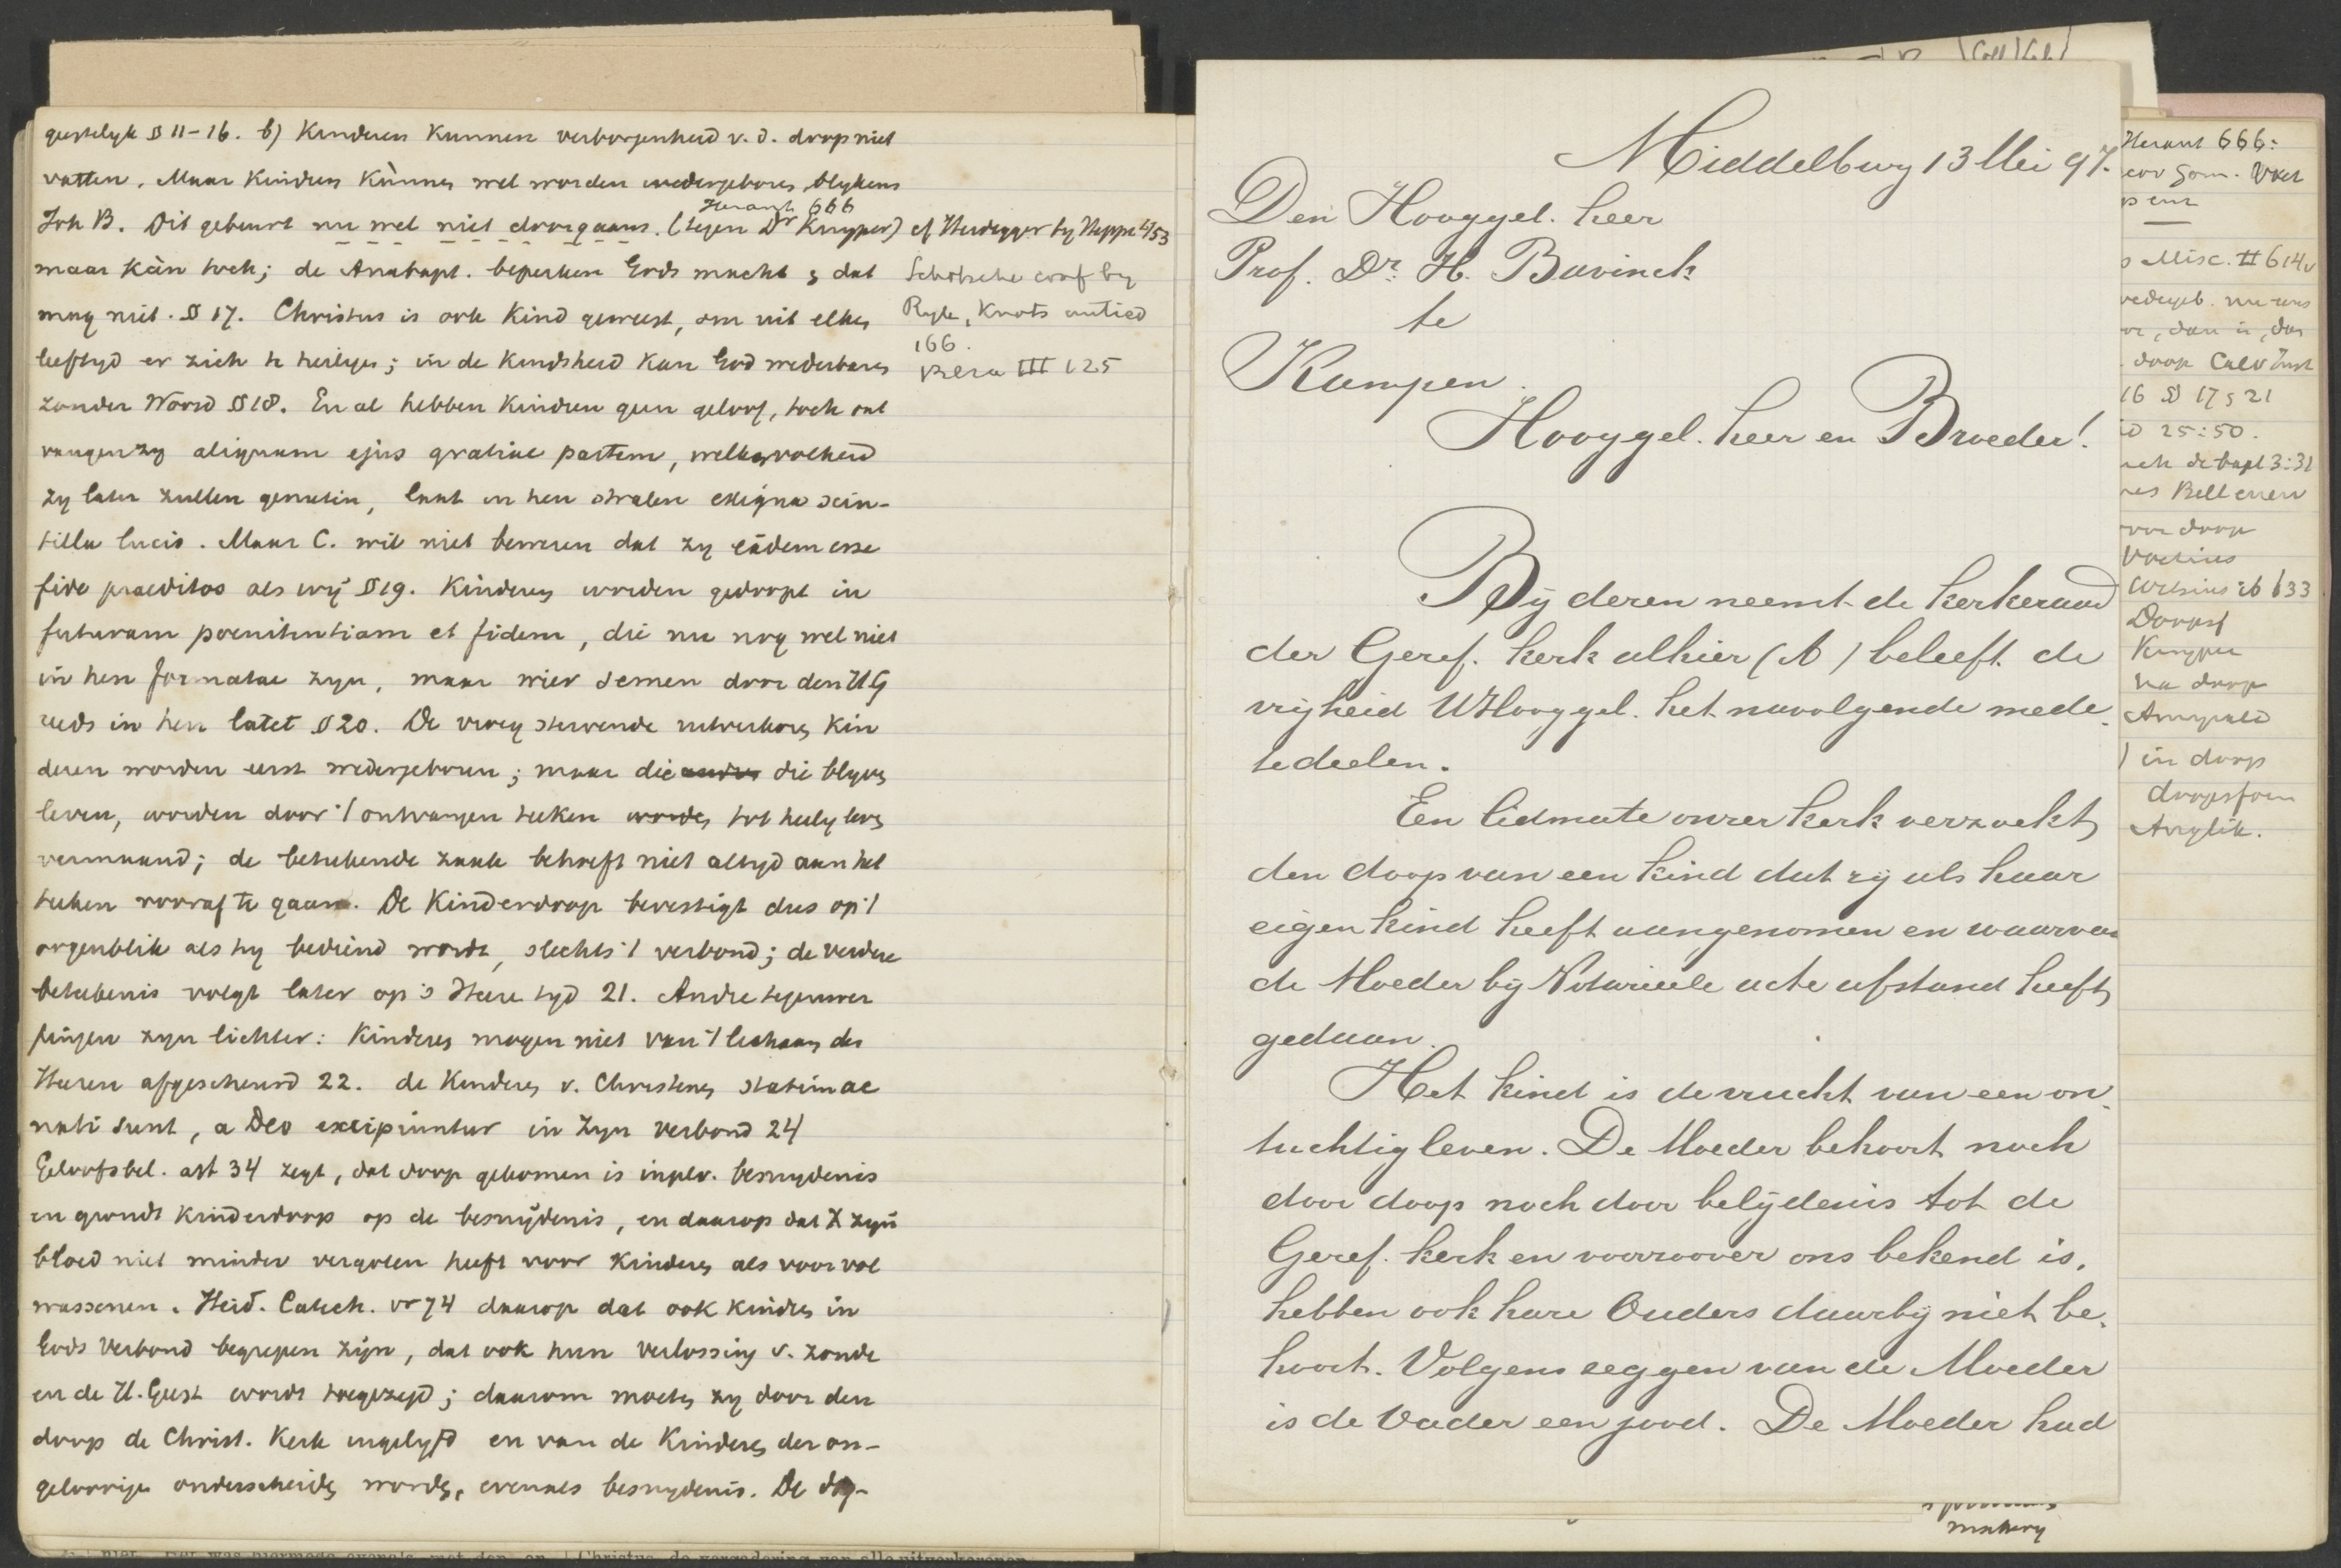 geestelyk § 11-16. b) Kinderen kunnen verborgenheid v. d. doop niet
vatten. Maar kinderen kùnnen wel worden wedergeboren, blykens
Joh B. Dit gebeurt nu wel niet doorgaans. (tegen Dr Kuyper) cf Heidegger by Heppe
Heraut 666
maar kàn toch; de Anabapt. beperken Gods macht & dat
mag niet. § 17. Christus is ook kind geweest, om uit elken
leeftyd er zich te heiligen; in de kindsheid kan God wederbaren
zonder Woord § 18. En al hebben kinderen geen geloof, toch ont
vangen zy aliquam ejus gratiae partem, welker volheid
zy later zullen genieten, laat in hen stralen exigua scin-
tilla lucis. Maar C. wil niet beweren dat zy eâdem esse
fide praeditos als wij § 19. Kinderen worden gedoopt in
futuram poenitentiam et fidem, die nu nog wel niet
in hen formatae zyn, maar wier semen door den H G
reeds in hen latet § 20. De vroeg stervende uitverkoren kin
deren worden eerst wedergeboren; maar die die blyven
leven, worden door 't ontvangen teeken tot heilig leven
vermaand; de beteekende zaak behoeft niet altyd aan het
teeken vooraf te gaan. De Kinderdoop bevestigt dus op 't
oogenblik als hy bediend wordt, slechts 't verbond; de verdere
beteekenis volgt later op 's Heere tyd 21. Andre tegenwer
pingen zyn lichter: Kinderen mogen niet van 't lichaam des
Heeren afgescheurd 22. de Kinderen v. Christenen statim ac
nati sunt, a Deo excipiuntur in zyn verbond 24
Geloofsbel. art 34 zegt, dat doop gekomen is in plv. besnydenis
en grondt kinderdoop op de besnijdenis, en daarop dat X zyn
bloed niet minder vergoten heeft voor kinderen als voor vol
wassenen. Heid. Catech. vr 74 daarop dat ook kindren in
Gods Verbond begrepen zijn, dat ook hun verlossing v. zonde
en de H. Geest wordt toegezegd; daarom moeten zy door den
doop de Christ. Kerk ingelyfd en van de Kinderen der on-
geloovigen onderscheiden worden, evenals besnydenis. De
Schotsche conf by
Ryle, Knots untied
166.
Beza III 125
Middelburg 13 Mei 97.
Den Hooggel. heer
Prof. Dr. H. Bavinck
te
Kampen.
Hooggel. heer en Broeder!
Bij dezen neemt de kerkeraad
der Geref. kerk alhier (A) beleeft de
vrijheid UHooggel. het navolgende mede
tedeelen.
Een lidmate onzer kerk verzoekt
den doop van een kind dat zij als haar
eigen kind heeft aangenomen en waarvan
de Moeder bij Notarieele acte afstand heeft
gedaan.
Het kind is de vrucht van een on
tuchtig leven. De Moeder behoort noch
door doop noch door belijdenis tot de
Geref. kerk en voorzoover ons bekend is,
hebben ook hare Ouders daarbij niet be
hoort. Volgens zeggen van de Moeder
is de Vader een jood. De Moeder had
Heraut 666:
Misc. II 614v
doop Calv Inst
16 § 17 & 21
25:50.
de bapt 3:31
voor doop
Voetius
Witsius ib 633
Kuyper
na doop
Amyrald
in doop
doopsform
Anglik.